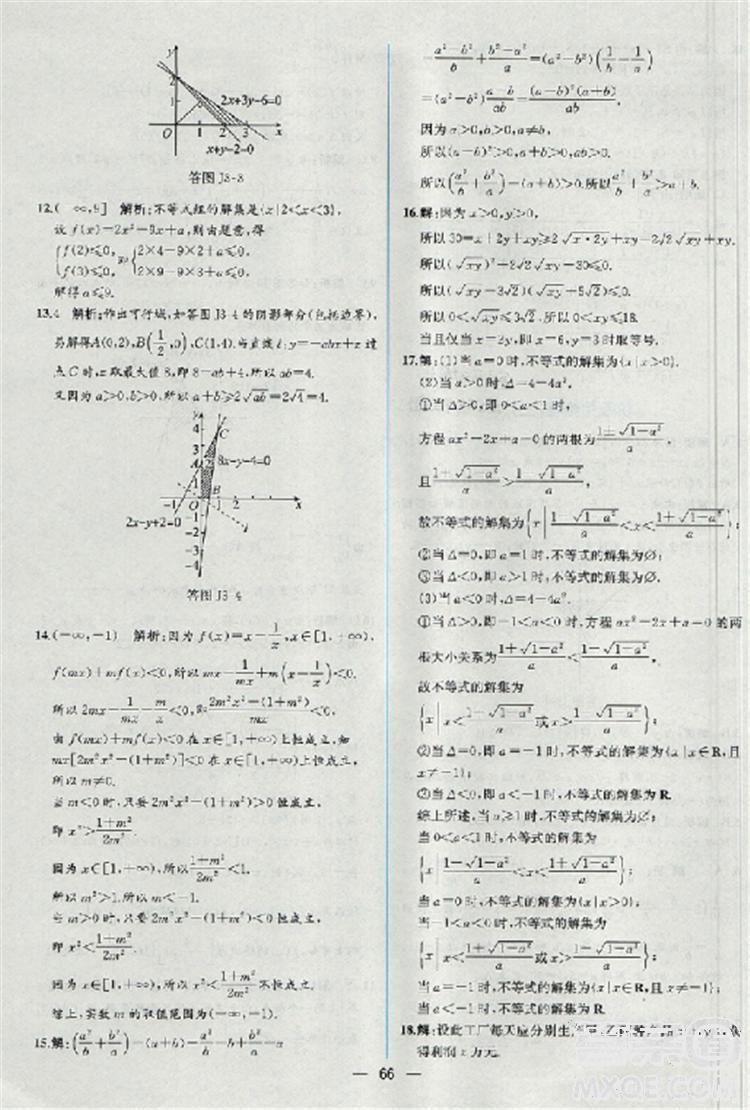 y
2
1
2x+3y-6=0
O 1 2 3 x
x+y-2=0
答图 J3-3
12.(-∞,9] 解析:不等式组的解集是{x|2<x<3},
设 f(x)=2x²-9x+a,则由题意,得
{f(2)≤0, f(3)≤0, 即 {2×4-9×2+a≤0, 2×9-9×3+a≤0,
解得 a≤9.
13.4 解析:作出可行域,如答图 J3-4的阴影部分(包括边界),
易解得A(0,2),B(1/2,0),C(1,4).当直线 l:y=-abx+z过
点C时,z取最大值8,即8=ab+4,所以ab=4.
又因为a>0,b>0,所以a+b≥2√ab=2√4=4.
y
4
C
3
A 2
8x-y-4=0
1
O B 1 2 x
2x-y+2=0
-1
-2
-3
-4
答图 J3-4
14.(-∞,-1) 解析:因为 f(x)=x-1/x,x∈[1,+∞),
f(mx)+mf(x)<0,所以 mx-1/mx+m(x-1/x)<0.
所以 2mx-1/mx-m/x<0,即 2m²x²-(1+m²)/mx<0.
由 f(mx)+mf(x)<0在x∈[1,+∞)上恒成立,知
mx[2m²x²-(1+m²)]<0在x∈[1,+∞)上恒成立,
所以 m≠0.
当 m<0时,只要 2m²x²-(1+m²)>0恒成立,
即 x²>1+m²/2m².
因为 x∈[1,+∞),所以 1+m²/2m²<1.
所以 m²>1,解得 m<-1.
当 m>0时,只要 2m²x²-(1+m²)<0恒成立,
即 x²<1+m²/2m².
因为 x∈[1,+∞),所以 x²<1+m²/2m² 不恒成立.
综上,实数 m 的取值范围为(-∞,-1).
15.解:(a²/b+b²/a)-(a+b)=a²/b-b+b²/a-a
=a²-b²/b+b²-a²/a=(a²-b²)(1/b-1/a)
=(a²-b²)a-b/ab=(a-b)²(a+b)/ab.
因为 a>0,b>0,a≠b,
所以(a-b)²>0,a+b>0,ab>0.
所以(a²/b+b²/a)-(a+b)>0,所以a²/b+b²/a>a+b.
16.解:因为 x>0,y>0,
所以 30=x+2y+xy≥2√x·2y+xy=2√2√xy+xy.
所以(√xy)²+2√2√xy-30≤0.
所以(√xy-3√2)(√xy+5√2)≤0.
所以 0<√xy≤3√2.所以0<xy≤18.
当且仅当 x=2y,即 x=6,y=3时取等号.
17.解:(1)当 a=0时,不等式的解集为{x|x>0}.
(2)当 a>0时,Δ=4-4a².
①当Δ>0,即0<a<1时,
方程 ax²-2x+a=0的两根为1±√1-a²/a,
且1+√1-a²/a>1-√1-a²/a,
故不等式的解集为{x|1-√1-a²/a<x<1+√1-a²/a};
②当Δ=0,即a=1时,不等式的解集为∅;
③当Δ<0,即a>1时,不等式的解集为∅.
(3)当 a<0时,Δ=4-4a².
①当Δ>0,即-1<a<0时,方程 ax²-2x+a=0的两
根大小关系为1+√1-a²/a<1-√1-a²/a,
故不等式的解集为
{x|x<1+√1-a²/a或x>1-√1-a²/a};
②当Δ=0,即a=-1时,不等式的解集为{x|x∈R,且
x≠-1};
③当Δ<0,即a<-1时,不等式的解集为R.
综上所述,当a≥1时,不等式的解集为∅;
当 0<a<1时,不等式的解集为
{x|1-√1-a²/a<x<1+√1-a²/a};
当 a=0时,不等式的解集为{x|x>0};
当-1<a<0时,不等式的解集为
{x|x<1+√1-a²/a或x>1-√1-a²/a};
当 a=-1时,不等式的解集为{x|x∈R,且x≠-1};
当 a<-1时,不等式的解集为R.
18.解:设此工厂每天应分别生产
得利润 z 万元.
— 66 —
MXQE.COM